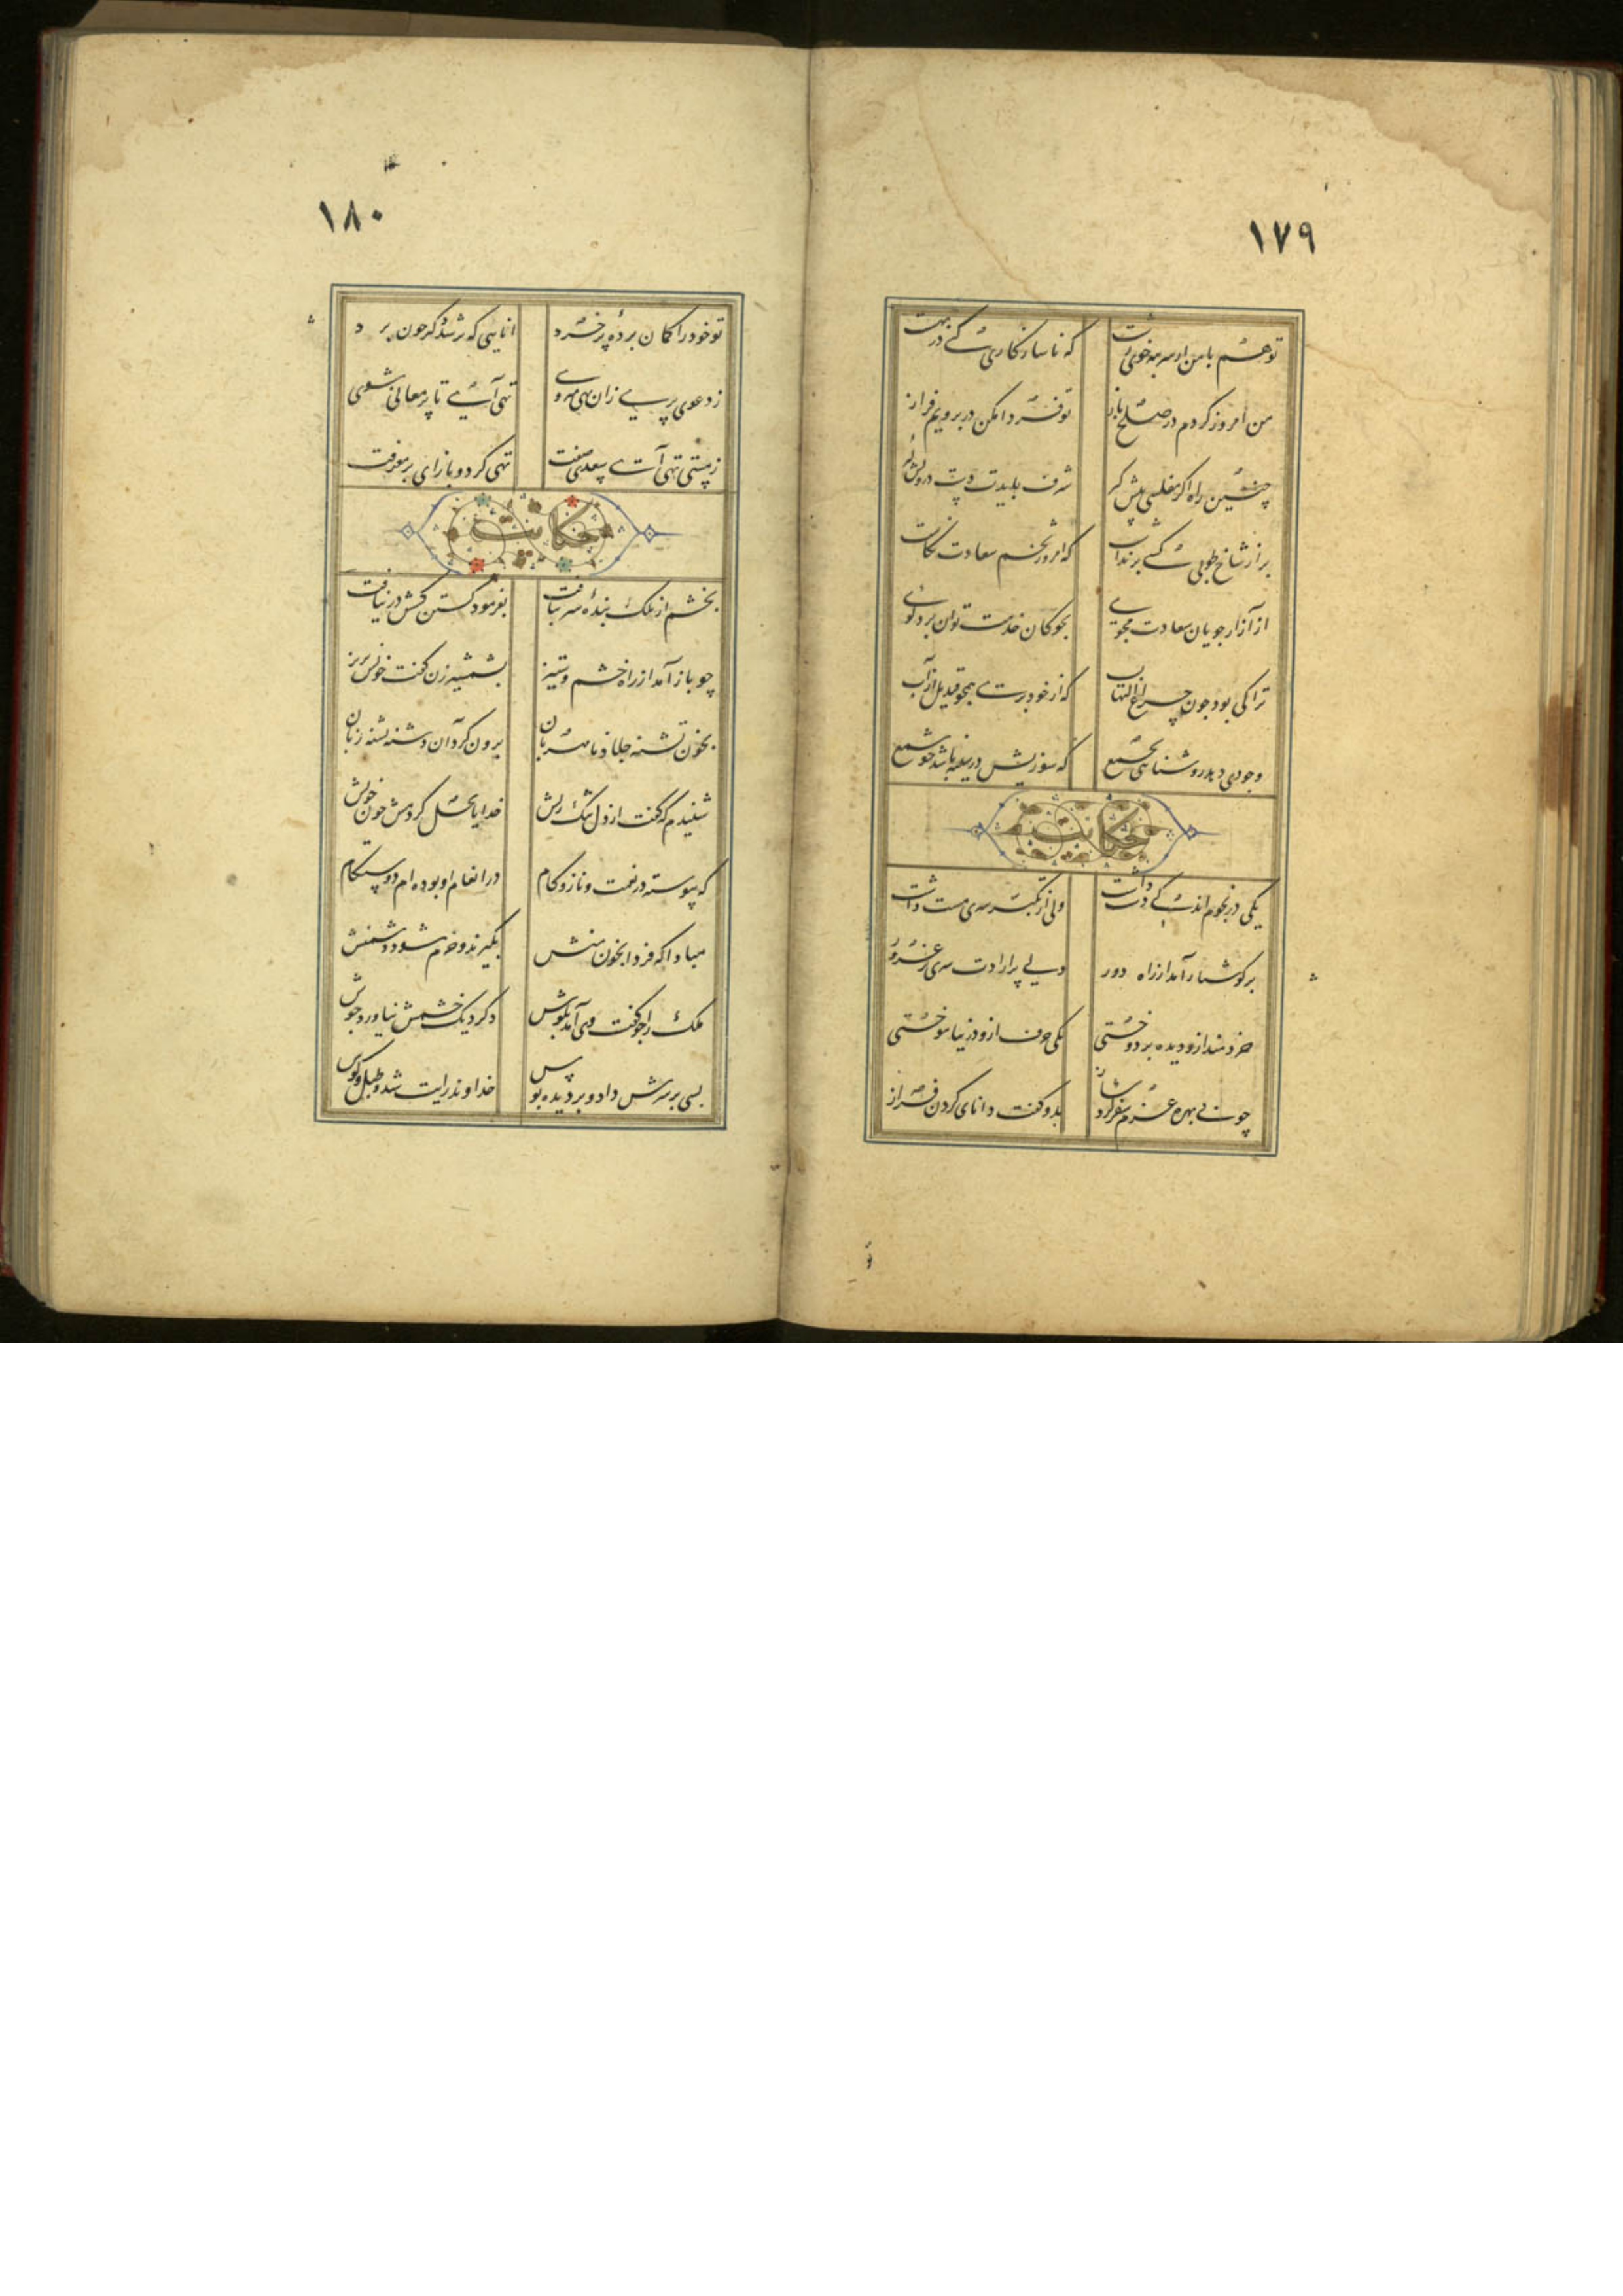 ١٧٩
توهم با من از سر بنه خوی زشت که ناسازکاری کنی در بهشت
من امروز کردم در صلح باز تو فردا مکن در برویم فراز
چنین راه اکر مفلسی پیش کیر شرف بایدت دست درویش کیر
بر از شاخ طوبی کسی برنداشت که امروز تخم سعادت نکاشت
از آزار جویان سعادت مجوی بجوکان خدمت توان برد کوی
ترا کی بود چون چراغ التهاب که از خود پری همچو قندیل از آب
وجودی دهد روشنایی بجمع که سوزیش در سینه باشد چو شمع
حکایت
یکی در نجوم اندکی دست داشت ولی از تکبر سری مست داشت
بر کوشیار آمد از راه دور دلی پر ارادت سری پر غرور
خردمند ازو دیده بردوختی یکی حرف ازو در نیاموختی
چو بی بهره عزم سفر کرد باز بدو کفت دانای کردن فراز
١٨٠
تو خود را کمان برده پر خرد انایی که پر شد کر چون برد
ز دعوی پری زان تهی میروی تهی آی تا پر معانی شوی
ز هستی تهی آی سعدی صفت تهی کرد و باز ای پر معرفت
حکایت
بخشم از ملک بنده سر بتافت بفرمود جستن کسش در نیافت
چو باز آمد از راه خشم و ستیز بشمشیر زن کفت خونش بریز
بخون تشنه جلاد نامهربان برون کرد آن دشنه تشنه زبان
شنیدم که کفت از دل تنک ریش خدایا بحل کردمش خون خویش
که پیوسته در نعمت و ناز و کام در انعام او بوده ام دوستکام
مبادا که فردا بخون منش بکیرند و خرم شود دشمنش
ملک را چو کفت وی آمد بکوش دکر دیک خشمش نیاورد جوش
بسی بر سرش داد و بر دیده بوس خداوند رایت شد و طبل و کوس